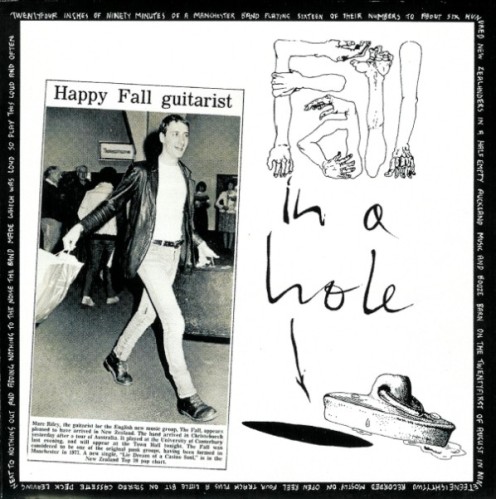 TWENTYFOUR INCHES OF NINETY MINUTES OF A MANCHESTER BAND PLAYING SIXTEEN OF THEIR NUMBERS TO ABOUT SIX HUN
DRED NEW ZEALANDERS IN A HALF EMPTY AUCKLAND MUSIC AND BOOZE BARN ON THE TWENTYFIRST OF AUGUST IN NINE
TEENEIGHTYTWO RECORDED MOSTLY ON OPEN REEL FOUR TRACK PLUS A LITTLE BIT ON STEREO CASSETTE DECK LEAVING
NEXT TO NOTHING OUT AND ADDING NOTHING TO THE NOISE THE BAND MADE WHICH WAS LOUD SO PLAY THIS LOUD AND OFTEN
Happy Fall guitarist
Marc Riley, the guitarist for the English new music group, The Fall, appears
pleased to have arrived in New Zealand. The band arrived in Christchurch
yesterday after a tour of Australia. It played at the University of Canterbury
last evening, and will appear at the Town Hall tonight. The Fall was
considered to be one of the original punk groups, having been formed in
Manchester in 1977. A new single, "Lie Dream of a Casino Soul," is in the
New Zealand Top 20 pop chart.
FALL
in a
hole